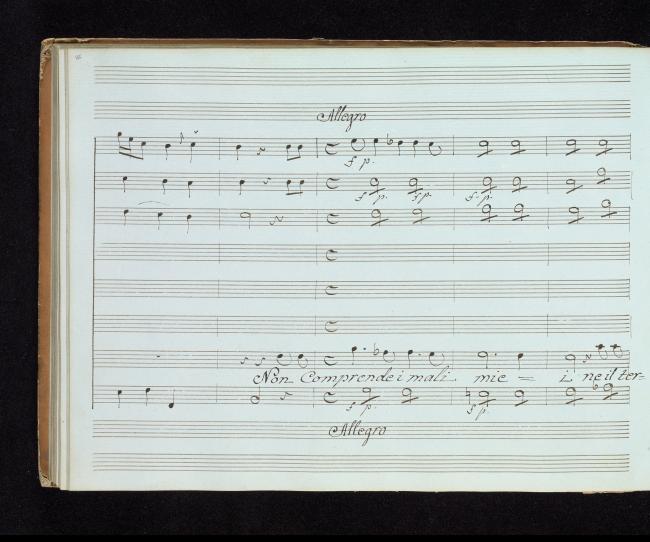 Allegro
f p.
f p. f p. f. p.
Non Comprende i mali mie = i ne il ter=
f p. f p.
Allegro